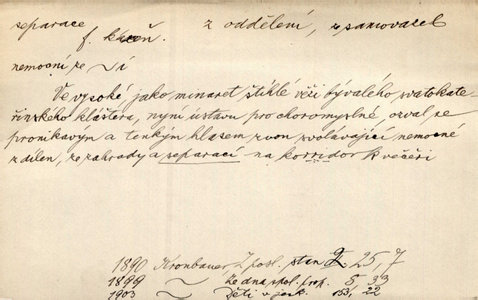 separace z oddělení, z samovazeb
f.
nemocní ze
Ve vysoké jako minaret štíhlé věži bývalého svatokate-
řinského kláštera, nyní ústavu pro choromyslné ozval se
pronikavým a tenkým hlasem zvon svolávající nemocné
z dílen, ze zahrady a separací na korridor k večeři
1890 Kronbauer Z posl. stan 2 25, 7
1899 Ze dna spol. 5, 33
1903 Děti v jesk. 153, 22